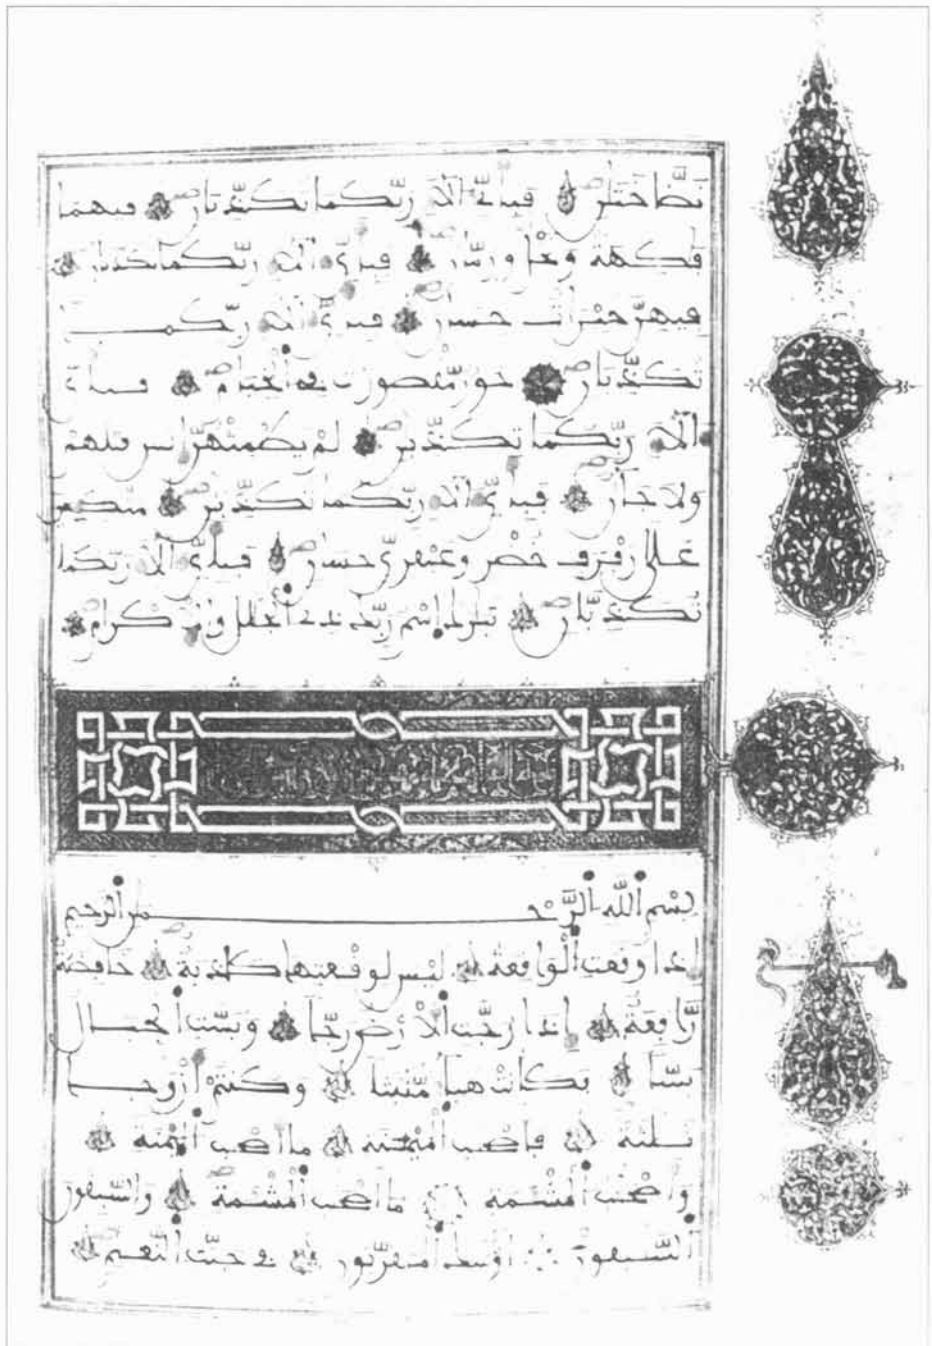 نَضَّاخَتَٰنِ فَبِأَيِّ ءَالَآءِ رَبِّكُمَا تُكَذِّبَانِ فِيهِمَا
فَٰكِهَةٌ وَنَخْلٌ وَرُمَّانٌ فَبِأَيِّ ءَالَآءِ رَبِّكُمَا تُكَذِّبَانِ
فِيهِنَّ خَيْرَٰتٌ حِسَانٌ فَبِأَيِّ ءَالَآءِ رَبِّكُمَا
تُكَذِّبَانِ حُورٌ مَّقْصُورَٰتٌ فِي ٱلْخِيَامِ فَبِأَيِّ
ءَالَآءِ رَبِّكُمَا تُكَذِّبَٰنِ لَمْ يَطْمِثْهُنَّ إِنسٌ قَبْلَهُمْ
وَلَا جَآنٌّ فَبِأَيِّ ءَالَآءِ رَبِّكُمَا تُكَذِّبَٰنِ مُتَّكِـِٕينَ
عَلَىٰ رَفْرَفٍ خُضْرٍ وَعَبْقَرِيٍّ حِسَانٍ فَبِأَيِّ ءَالَآءِ رَبِّكُمَا
تُكَذِّبَانِ تَبَٰرَكَ ٱسْمُ رَبِّكَ ذِي ٱلْجَلَٰلِ وَٱلْإِكْرَامِ
بِسْمِ ٱللَّهِ ٱلرَّحْمَٰنِ ٱلرَّحِيمِ
إِذَا وَقَعَتِ ٱلْوَاقِعَةُ لَيْسَ لِوَقْعَتِهَا كَاذِبَةٌ خَافِضَةٌ
رَّافِعَةٌ إِذَا رُجَّتِ ٱلْأَرْضُ رَجًّا وَبُسَّتِ ٱلْجِبَالُ
بَسًّا فَكَانَتْ هَبَآءً مُّنۢبَثًّا وَكُنتُمْ أَزْوَٰجًا
ثَلَٰثَةً فَأَصْحَٰبُ ٱلْمَيْمَنَةِ مَآ أَصْحَٰبُ ٱلْمَيْمَنَةِ
وَأَصْحَٰبُ ٱلْمَشْـَٔمَةِ مَآ أَصْحَٰبُ ٱلْمَشْـَٔمَةِ وَٱلسَّٰبِقُونَ
ٱلسَّٰبِقُونَ أُوْلَٰٓئِكَ ٱلْمُقَرَّبُونَ فِي جَنَّٰتِ ٱلنَّعِيمِ